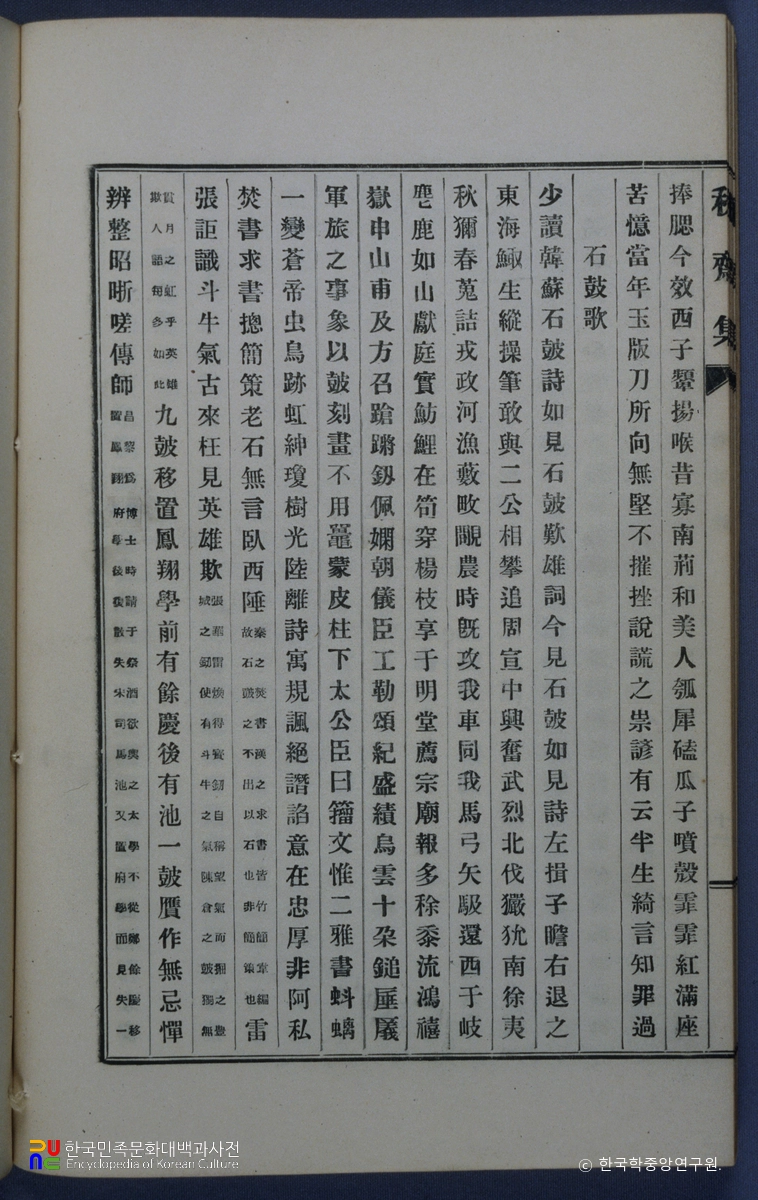 秋齋集
捧腮今效西子顰揚喉昔寡南荊和美人瓠犀磕瓜子噴殼霏霏紅滿座
苦憶當年玉版刀所向無堅不摧挫說謊之祟諺有云半生綺言知罪過
石鼓歌
少讀韓蘇石皷詩如見石皷歎雄詞今見石皷如見詩左揖子瞻右退之
東海鯫生縱操筆敢與二公相攀追周宣中興奮武烈北伐玁狁南徐夷
秋獮春蒐詰戎政河漁藪畋覵農時旣攻我車同我馬弓矢馺還西于岐
麀鹿如山獻庭實魴鯉在笱穿楊枝享于明堂薦宗廟報多稌黍流鴻禧
嶽申山甫及方召蹌蹡釼佩嫻朝儀臣工勒頌紀盛績鳥雲十朶鎚
軍旅之事象以皷刻畫不用鼉蒙皮柱下太公臣曰籒文惟二雅書蚪螭
一變蒼帝虫鳥跡虹紳瓊樹光陸離詩寓規諷絕譖諂意在忠厚非阿私
焚書求書摠簡策老石無言臥西陲秦之焚書漢之求書皆竹簡韋編故石皷之不出以石也非簡策也雷
張詎識斗牛氣古來枉見英雄欺張華雷煥得寶釼自稱望氣而掘之豊城之釼使有斗牛之氣陳倉之皷獨無
貫月之虹乎英雄欺人語每多如此九皷移置鳳翔學前有餘慶後有池一皷贋作無忌憚
辨整昭晣嗟傳師昌黎爲博士時請于祭酒欲輿之太學不從鄭餘慶移置鳳翔府學後散失宋司馬池又置府學而見失一
한국민족문화대백과사전
Encyclopedia of Korean Culture
© 한국학중앙연구원.